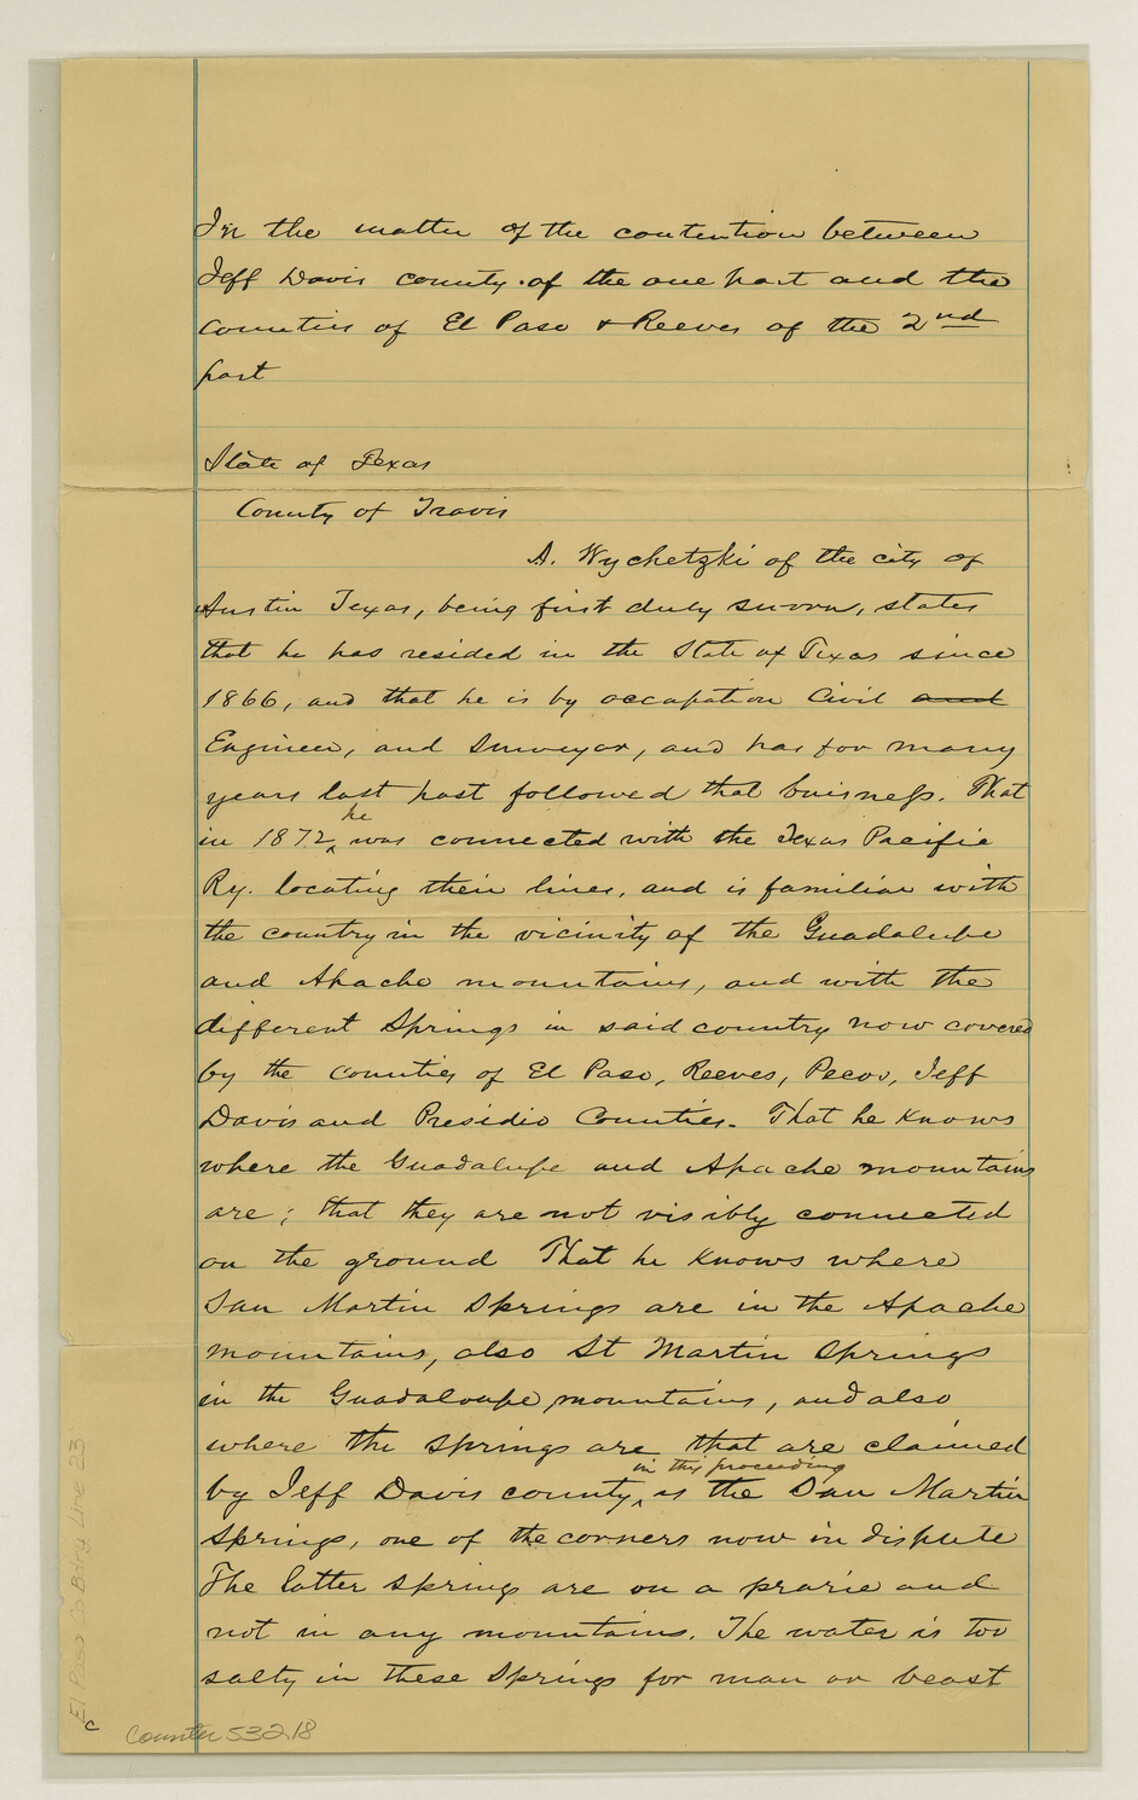 In the matter of the contention between
Jeff Davis county of the one part and the
counties of El Paso & Reeves of the 2nd
part
State of Texas
County of Travis
A. Wychetzki of the city of
Austin Texas, being first duly sworn, states
that he has resided in the State of Texas since
1866, and that he is by occupation Civil and
Engineer, and Surveyor, and has for many
years last past followed that buisness. That
in 1872, he was connected with the Texas Pacific
Ry. locating their lines, and is familiar with
the country in the vicinity of the Guadalupe
and Apache mountains, and with the
different Springs in said country now covered
by the counties of El Paso, Reeves, Pecos, Jeff
Davis and Presidio Counties. That he knows
where the Guadalupe and Apache mountains
are; that they are not visibly connected
on the ground That he knows where
San Martin Springs are in the Apache
mountains, also St Martin Springs
in the Guadaloupe mountains, and also
where the springs are that are claimed
in this proceeding
by Jeff Davis county, is the San Martin
Springs, one of the corners now in dispute
The latter springs are on a prarie and
not in any mountains. The water is too
salty in these Springs for man or beast
El Paso Co Bdry Line 23
c
Counter 53218